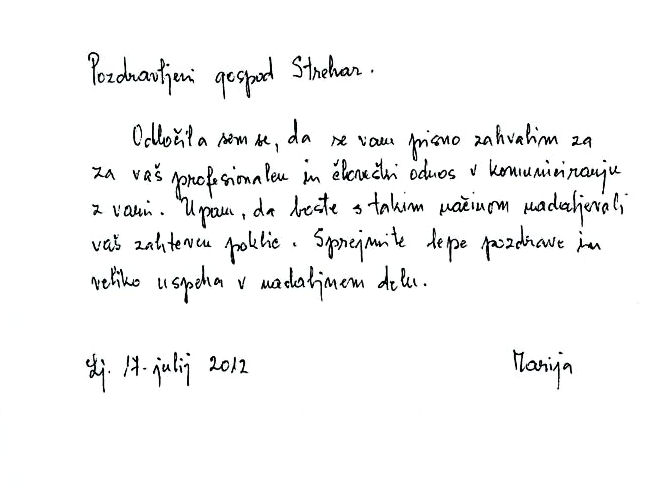 Pozdravljeni gospod Strehar.
Odločila sem se, da se vam pisno zahvalim za
za vaš profesionalen in človeški odnos v komuniciranju
z vami. Upam, da boste s takim načinom nadaljevali
vaš zahteven poklic. Sprejmite lepe pozdrave in
veliko uspeha v nadaljnem delu.
Lj. 17. julij 2012
Marija